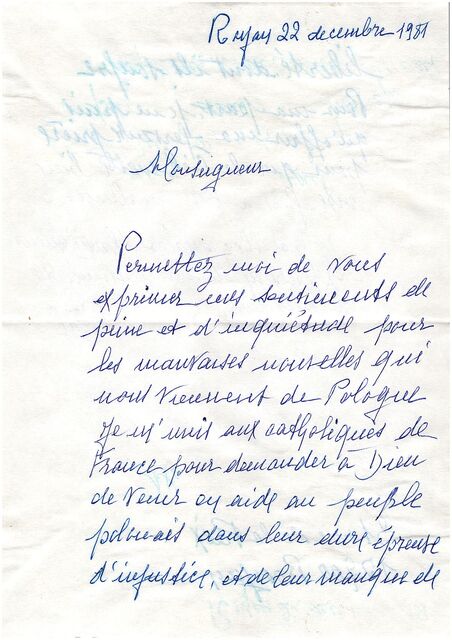 Royan 22 decembre 1981
Monseigneur
Permettez moi de vous
exprimer mes sentiments de
peine et d'inquiétude pour
les mauvaises nouvelles qui
nous viennent de Pologne
Je m'unis aux catholiques de
France pour demander à Dieu
de venir en aide au peuple
polonais dans leur dure épreuve
d'injustice, et de leur manque de